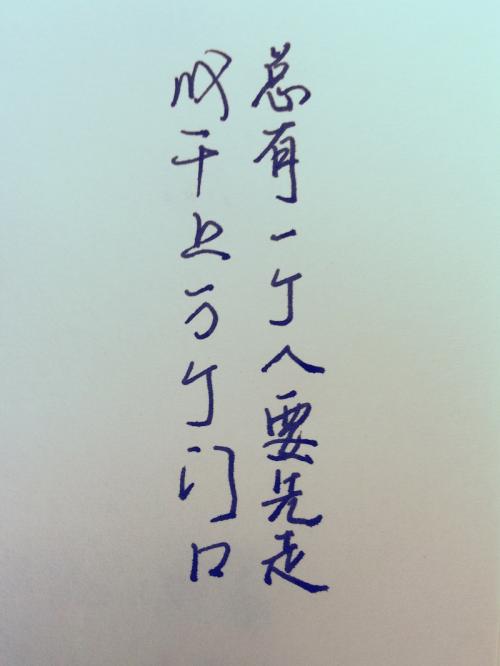 总有一个人要先走
成千上万个门口